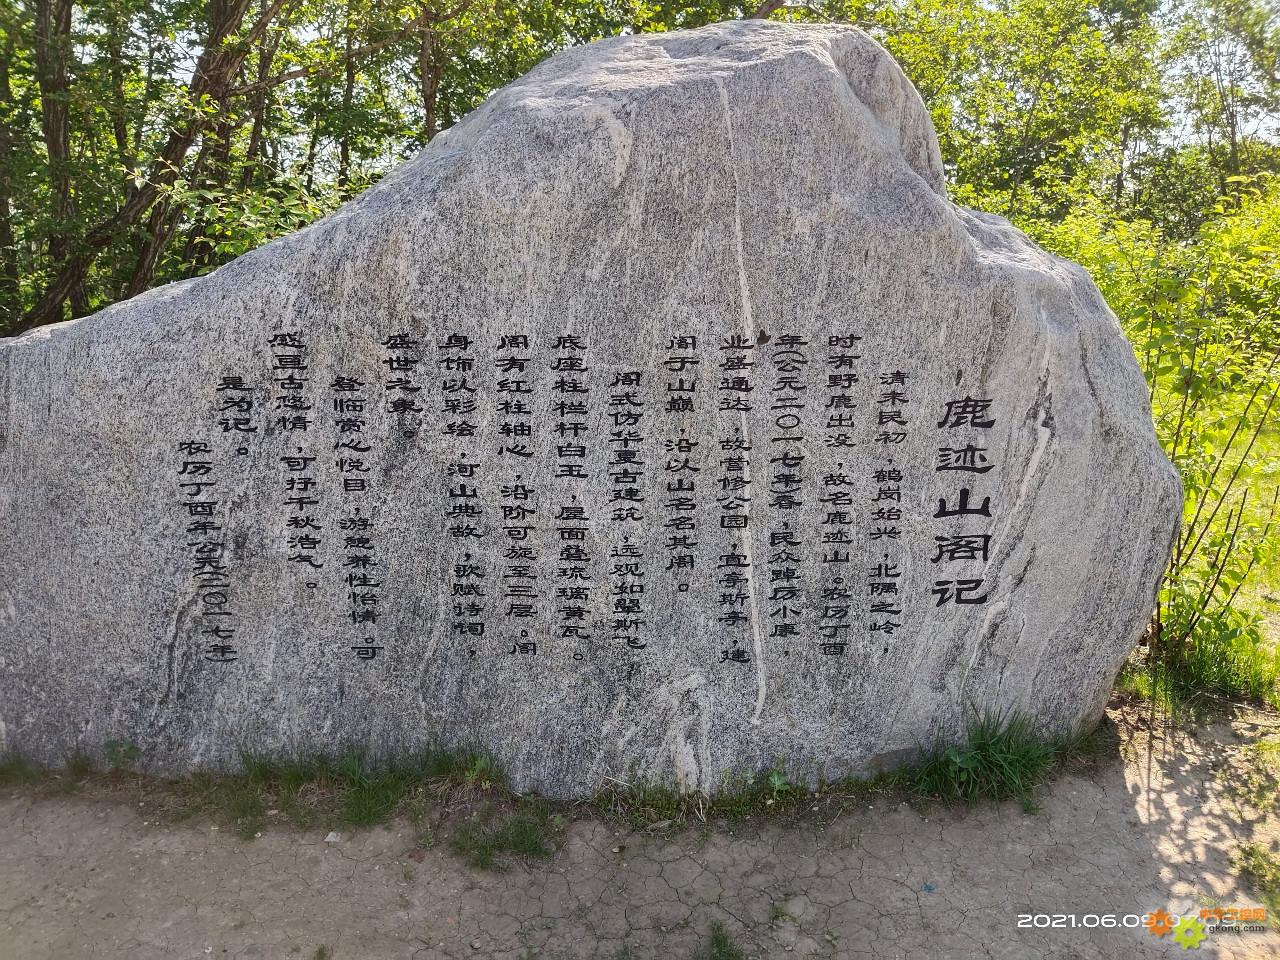 鹿迹山阁记
清末民初，鹤岗始兴，北隅之岭，
时有野鹿出没，故名鹿迹山。农历丁酉
年（公元二〇一七年）春，民众踔厉小康，
业盛通达，故营修公园，宜亭斯亭，建
阁于山巅，沿以山名名其阁。
阁式仿华夏古建筑，远观如翚斯飞，
底座柱栏杆白玉，屋面叠琉璃黄瓦。
阁有红柱轴心，沿阶可旋至三层。阁
身饰以彩绘，河山典故，歌赋诗词，
盛世之象。
登临赏心悦目，游憩养性怡情。可
感亘古悠情，可抒千秋浩气。
是为记。
农历丁酉年（公元二〇一七年）
2021.06.09
gkong.com